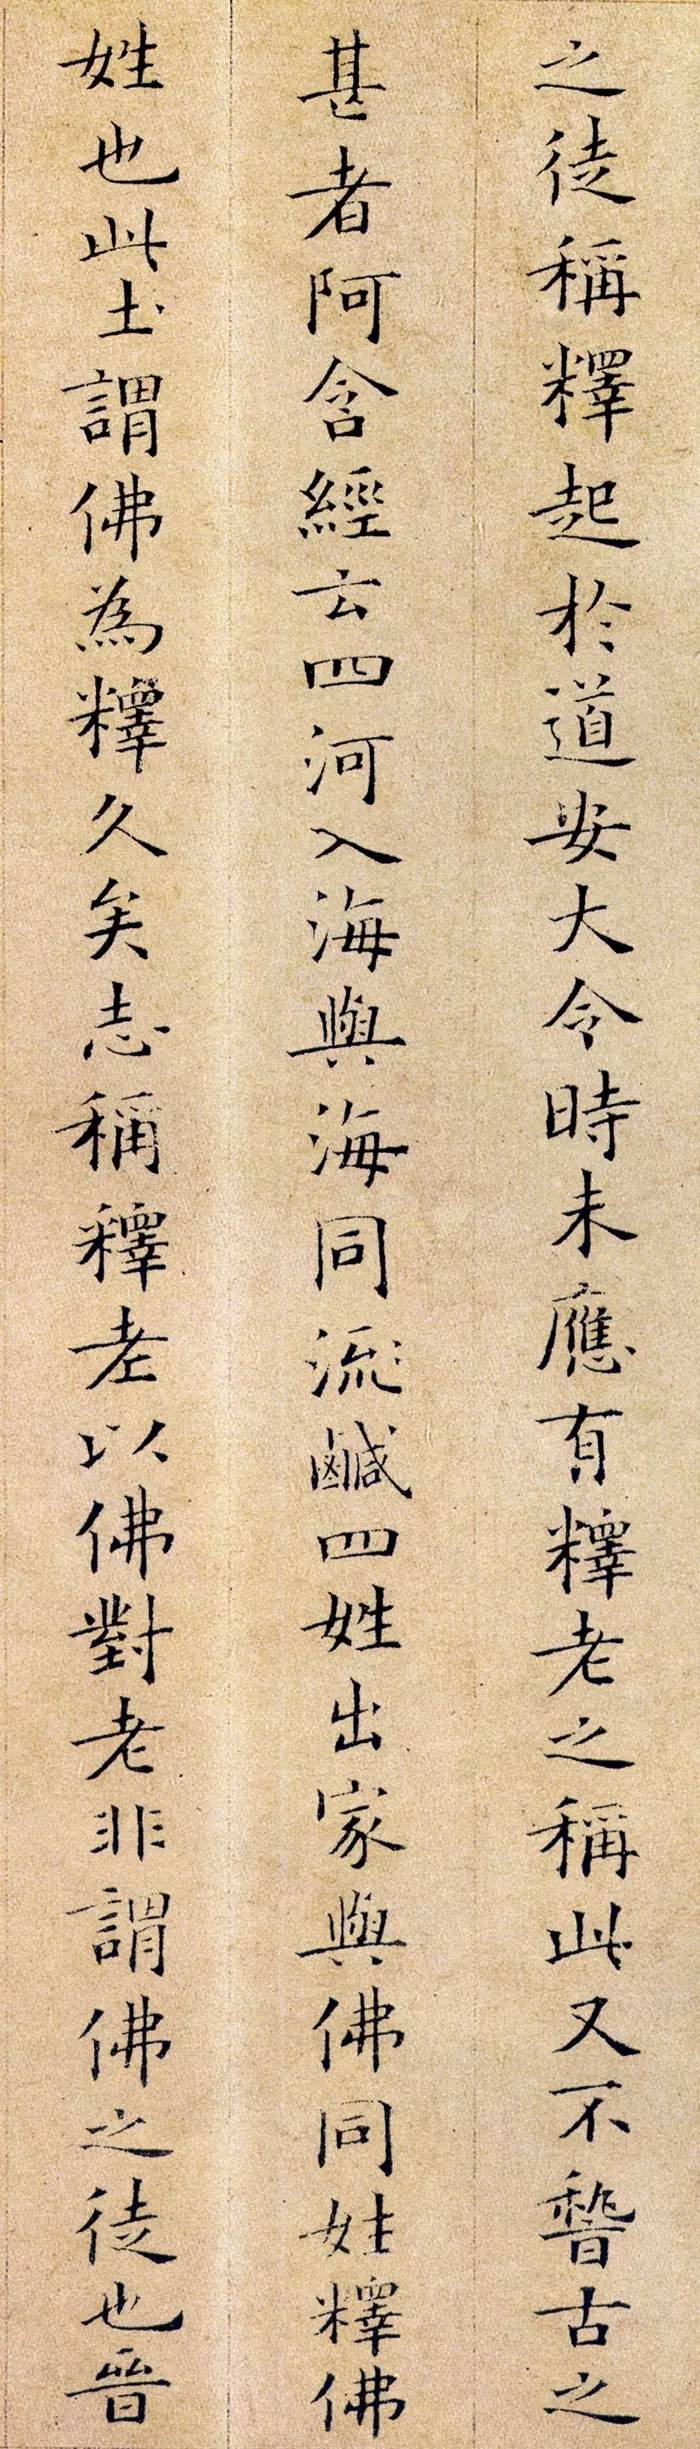 之徒稱釋起於道安大令時未應有釋老之稱此又不稽古之
甚者阿含經云四河入海與海同流鹹四姓出家與佛同姓釋佛
姓也此土謂佛為釋久矣志稱釋老以佛對老非謂佛之徒也晉